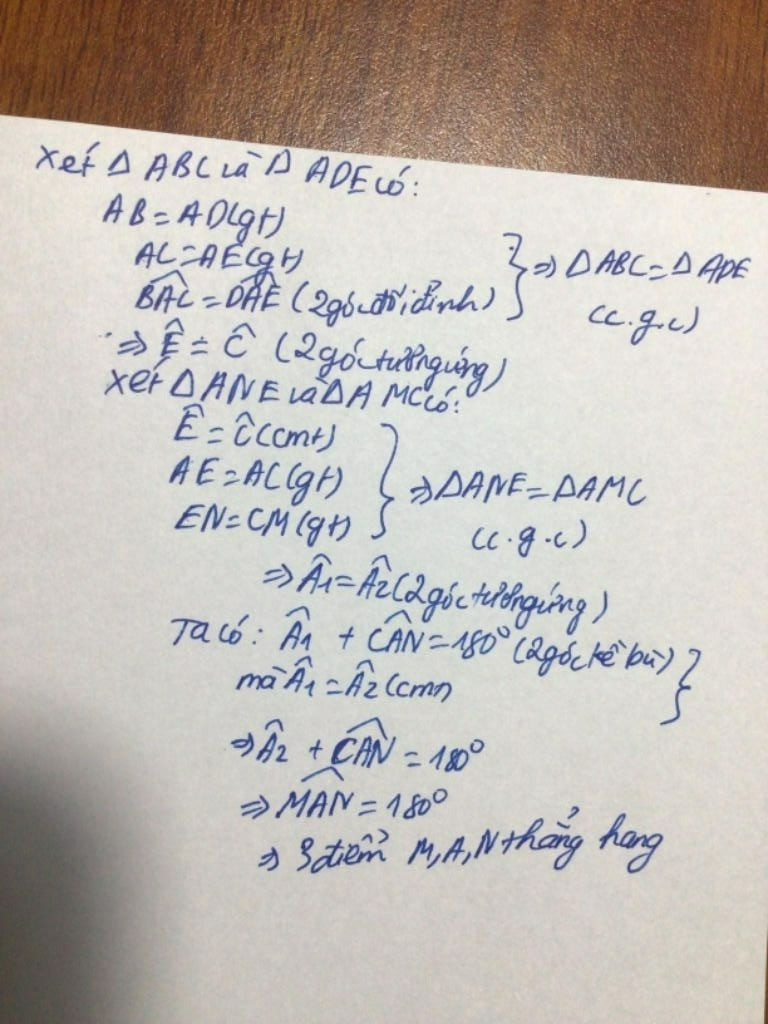 Xét Δ ABC và Δ ADE có:
AB = AD (gt)
AC = AE (gt)
BAC^ = DAE^ (2 góc đối đỉnh) } ⇒ Δ ABC = Δ ADE
(c.g.c)
⇒ Ê = Ĉ (2 góc tương ứng)
Xét Δ ANE và Δ AMC có:
Ê = Ĉ (cmt)
AE = AC (gt) } ⇒ Δ ANE = Δ AMC
EN = CM (gt) (c.g.c)
⇒ Â1 = Â2 (2 góc tương ứng)
Ta có: Â1 + CAN^ = 180° (2 góc kề bù) }
mà Â1 = Â2 (cmt)
⇒ Â2 + CAN^ = 180°
⇒ MAN^ = 180°
⇒ 3 điểm M, A, N thẳng hang